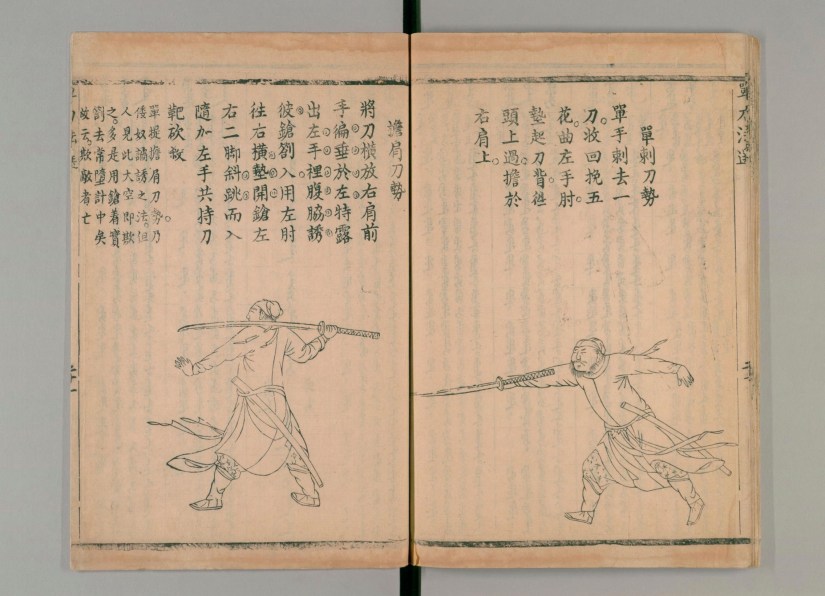 單刀法選
單刺刀勢
單手刺去一
刀。收回挽五
花。曲左手肘
墊起刀背從
頭上。過擔於
右肩上。
擔肩刀勢
將刀橫放右肩前
手偏垂於左特露
出左手裡腹脇誘
彼鎗劄入用左肘
往右橫墊開鎗左
右二脚斜跳而入
隨加左手共持刀
靶砍敵
單提擔肩刀勢乃
倭奴譎誘之法。但
人見此大空即欺
之。多是用鎗着實
劄去常墮計中矣
故云。欺敵者亡